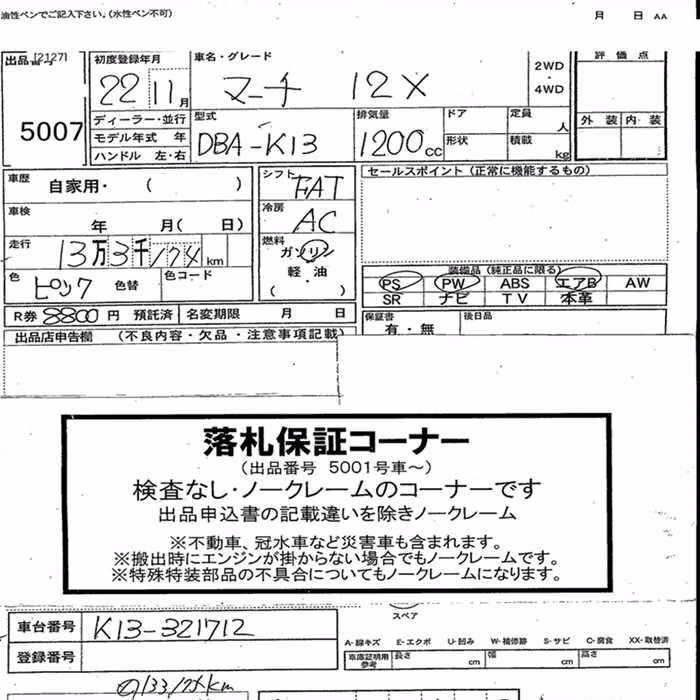 油性ペンでご記入下さい。(水性ペン不可) 月 日 AA
出品番号 初度登録年月 車名・グレード 評価点
5007 22 11月 マーチ 12X 2WD ・ 4WD
ディーラー・並行 型式 排気量 ドア 定員 人 外装 内装
モデル年式 年 DBA-K13 1200cc 形状 積載 kg
ハンドル 左・右
車歴 自家用・ ( ) シフト FAT セールスポイント (正常に機能するもの)
車検 年 月( 日) 冷房 AC
走行 13万3千 km 燃料 ガソリン
色 ピンク 色替 色コード 軽・油 ( )
装備品 (純正品に限る)
PS PW ABS エアB AW
SR ナビ TV 本革
R券 8800 円 預託済 名変期限 月 日 保証書 有・無 後日品
出品店申告欄 (不良内容・欠品・注意事項記載)
落札保証コーナー
(出品番号 5001号車〜)
検査なし・ノークレームのコーナーです
出品申込書の記載違いを除きノークレーム
※不動車、冠水車など災害車も含まれます。
※搬出時にエンジンが掛からない場合でもノークレームです。
※特殊特装部品の不具合についてもノークレームになります。
スペア
車台番号 K13-321712
A-線キズ E-エクボ U-凹み W-補修跡 S-サビ C-腐食 XX-取替済
登録番号 車庫証明用参考 長さ cm 幅 cm 高さ cm